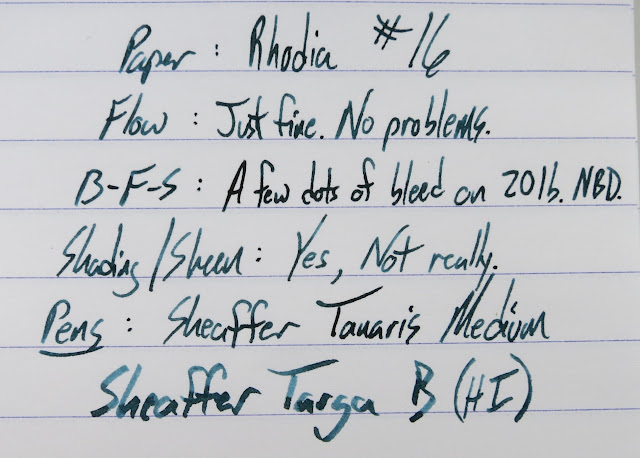 Paper : Rhodia #16
Flow : Just fine. No problems.
B-F-S : A few dots of bleed on 20lb. NBD.
Shading/Sheen : Yes, Not really.
Pens : Sheaffer Tauaris Medium
Sheaffer Targa B (HI)